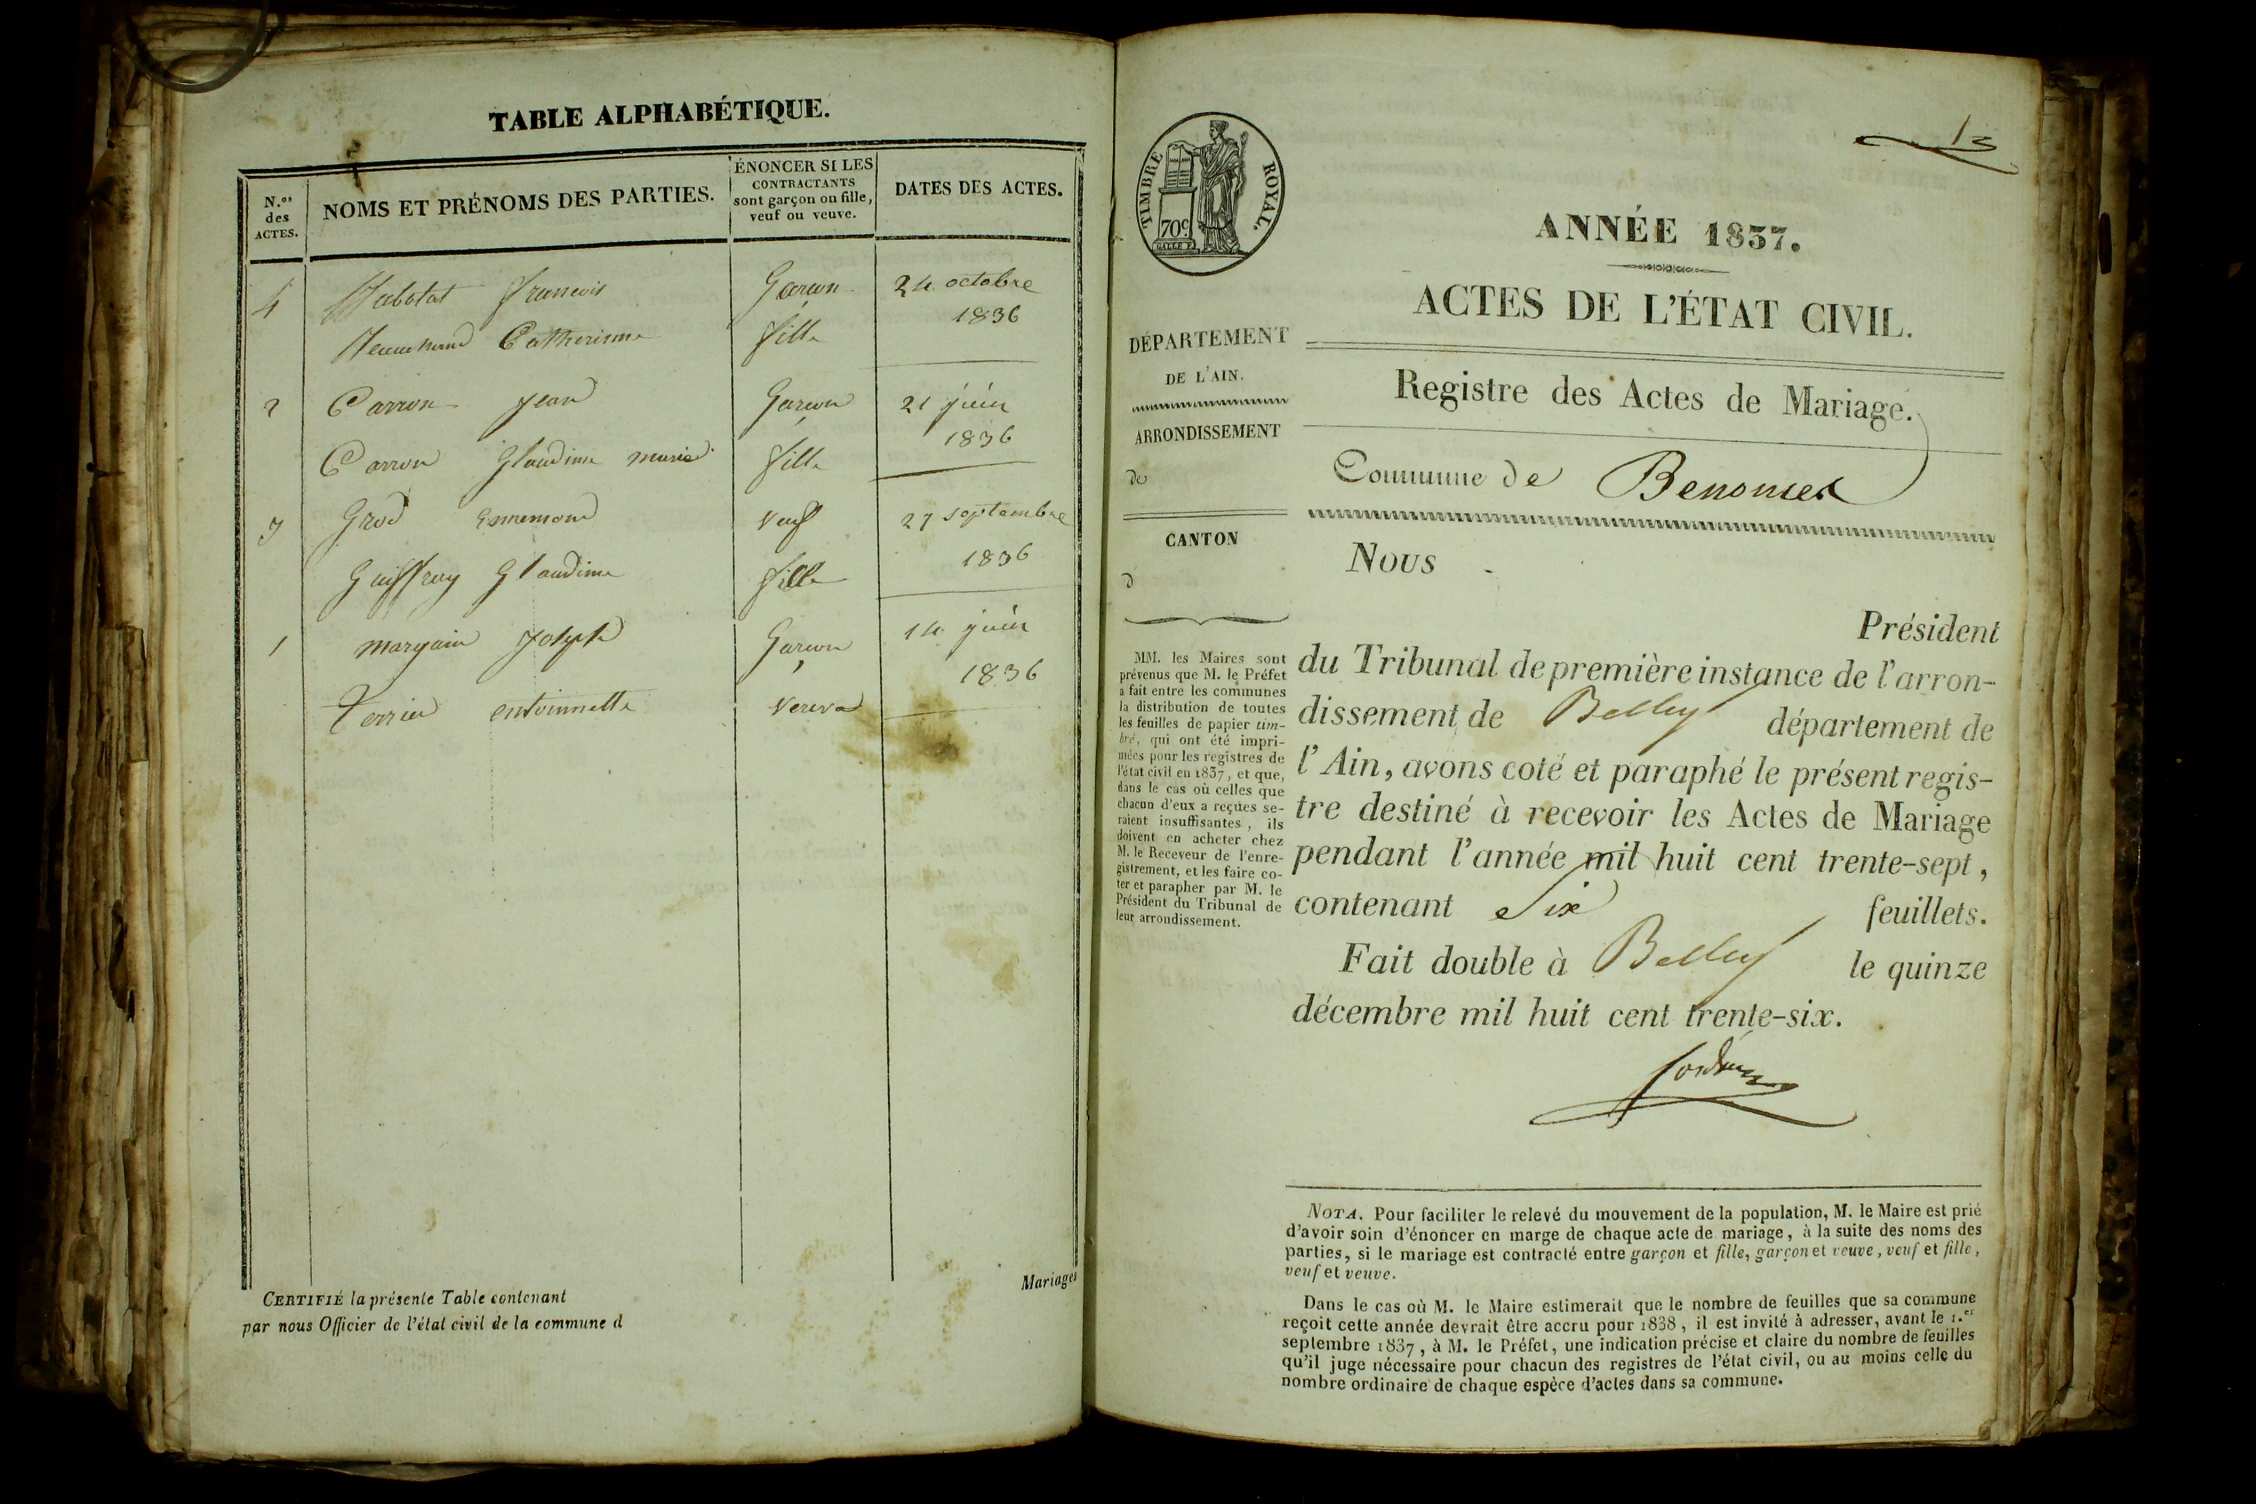 TABLE ALPHABÉTIQUE.
N.os des ACTES.
NOMS ET PRÉNOMS DES PARTIES.
ÉNONCER SI LES
CONTRACTANTS
sont garçon ou fille,
veuf ou veuve.
DATES DES ACTES.
4 françois Garçon 24 octobre
Catherinne fille 1836
2 Carron jean Garcon 21 juin
Carron Glaudine marie fille 1836
3 Grod Ennemond veuf 27 septembre
Guiffray Glaudine fille 1836
1 margain joseph Garçon 14 juin
Terrier entoinnette veuva 1836
CERTIFIÉ la présente Table contenant
Mariages
par nous Officier de l'état civil de la commune d
13
TIMBRE ROYAL.
70c.
ANNÉE 1837.
ACTES DE L'ÉTAT CIVIL.
Registre des Actes de Mariage.
Commune de Benonces
DÉPARTEMENT
DE L'AIN.
ARRONDISSEMENT
de
CANTON
d
MM. les Maires sont
prévenus que M. le Préfet
a fait entre les communes
la distribution de toutes
les feuilles de papier tim-
bré, qui ont été impri-
mées pour les registres de
l'état civil en 1837, et que,
dans le cas où celles que
chacun d'eux a reçues se-
raient insuffisantes, ils
doivent en acheter chez
M. le Receveur de l'enre-
gistrement, et les faire co-
ter et parapher par M. le
Président du Tribunal de
leur arrondissement.
Nous
Président
du Tribunal de première instance de l'arron-
dissement de Belley département de
l'Ain, avons coté et paraphé le présent regis-
tre destiné à recevoir les Actes de Mariage
pendant l'année mil huit cent trente-sept,
contenant Six feuillets.
Fait double à Belley le quinze
décembre mil huit cent trente-six.
NOTA. Pour faciliter le relevé du mouvement de la population, M. le Maire est prié
d'avoir soin d'énoncer en marge de chaque acte de mariage, à la suite des noms des
parties, si le mariage est contracté entre garçon et fille, garçon et veuve, veuf et fille,
veuf et veuve.
Dans le cas où M. le Maire estimerait que le nombre de feuilles que sa commune
reçoit cette année devrait être accru pour 1838, il est invité à adresser, avant le 1.er
septembre 1837, à M. le Préfet, une indication précise et claire du nombre de feuilles
qu'il juge nécessaire pour chacun des registres de l'état civil, ou au moins celle du
nombre ordinaire de chaque espèce d'actes dans sa commune.